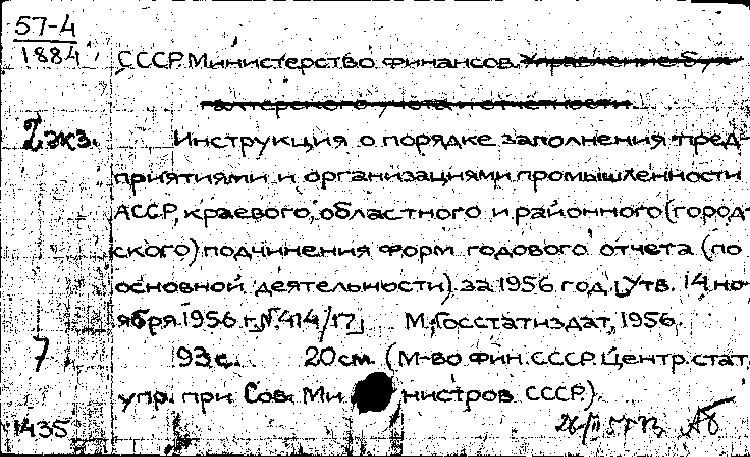 57-4
1884
СССР. Министерство финансов. Управление бух-
галтерского учета и отчетности.
2 экз. Инструкция о порядке заполнения пред-
приятиями и организациями промышленности
АССР, краевого, областного и районного (город-
ского) подчинения форм годового отчета (по
основной деятельности) за 1956 год. [Утв. 14 но-
ября 1956 г. № 414/17] М., Госстатиздат, 1956.
7 93 с. 20 см. (М-во фин. СССР. Центр. стат.
упр. при Сов. Министров СССР)
1435